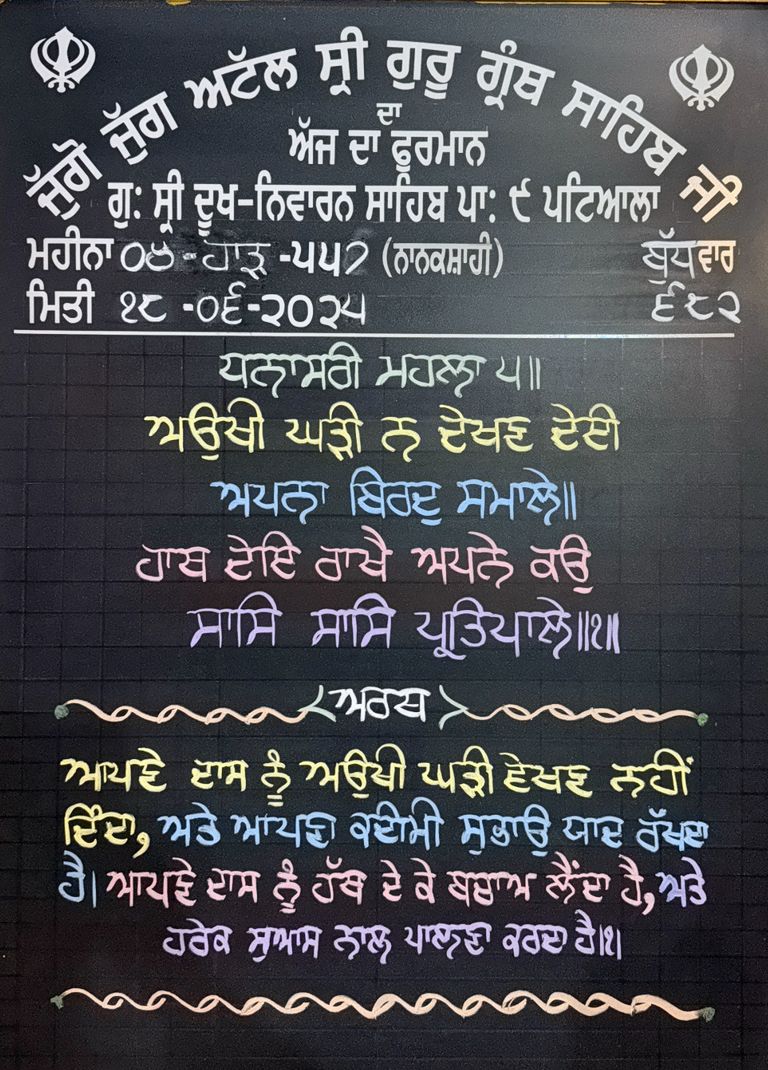 ਜੁੱਗੋ ਜੁੱਗ ਅਟੱਲ ਸ੍ਰੀ ਗੁਰੂ ਗ੍ਰੰਥ ਸਾਹਿਬ ਜੀ
ਦਾ
ਅੱਜ ਦਾ ਫੁਰਮਾਨ
ਗੁ: ਸ੍ਰੀ ਦੂਖ-ਨਿਵਾਰਨ ਸਾਹਿਬ ਪਾ: ੯ ਪਟਿਆਲਾ
ਮਹੀਨਾ ੦੪-ਹਾੜ -੫੫੭ (ਨਾਨਕਸ਼ਾਹੀ) ਬੁੱਧਵਾਰ
ਮਿਤੀ ੧੮ -੦੬-੨੦੨੫ ੬੮੨
ਧਨਾਸਰੀ ਮਹਲਾ ੫॥
ਅਉਖੀ ਘੜੀ ਨ ਦੇਖਣ ਦੇਈ
ਅਪਨਾ ਬਿਰਦੁ ਸਮਾਲੇ॥
ਹਾਥ ਦੇਇ ਰਾਖੈ ਅਪਨੇ ਕਉ
ਸਾਸਿ ਸਾਸਿ ਪ੍ਰਤਿਪਾਲੇ॥੧॥
ਅਰਥ
ਆਪਣੇ ਦਾਸ ਨੂੰ ਅਉਖੀ ਘੜੀ ਵੇਖਣ ਨਹੀਂ
ਦਿੰਦਾ, ਅਤੇ ਆਪਣਾ ਕਦੀਮੀ ਸੁਭਾਉ ਯਾਦ ਰੱਖਦਾ
ਹੈ। ਆਪਣੇ ਦਾਸ ਨੂੰ ਹੱਥ ਦੇ ਕੇ ਬਚਾਅ ਲੈਂਦਾ ਹੈ, ਅਤੇ
ਹਰੇਕ ਸੁਆਸ ਨਾਲ ਪਾਲਣਾ ਕਰਦਾ ਹੈ।੧।